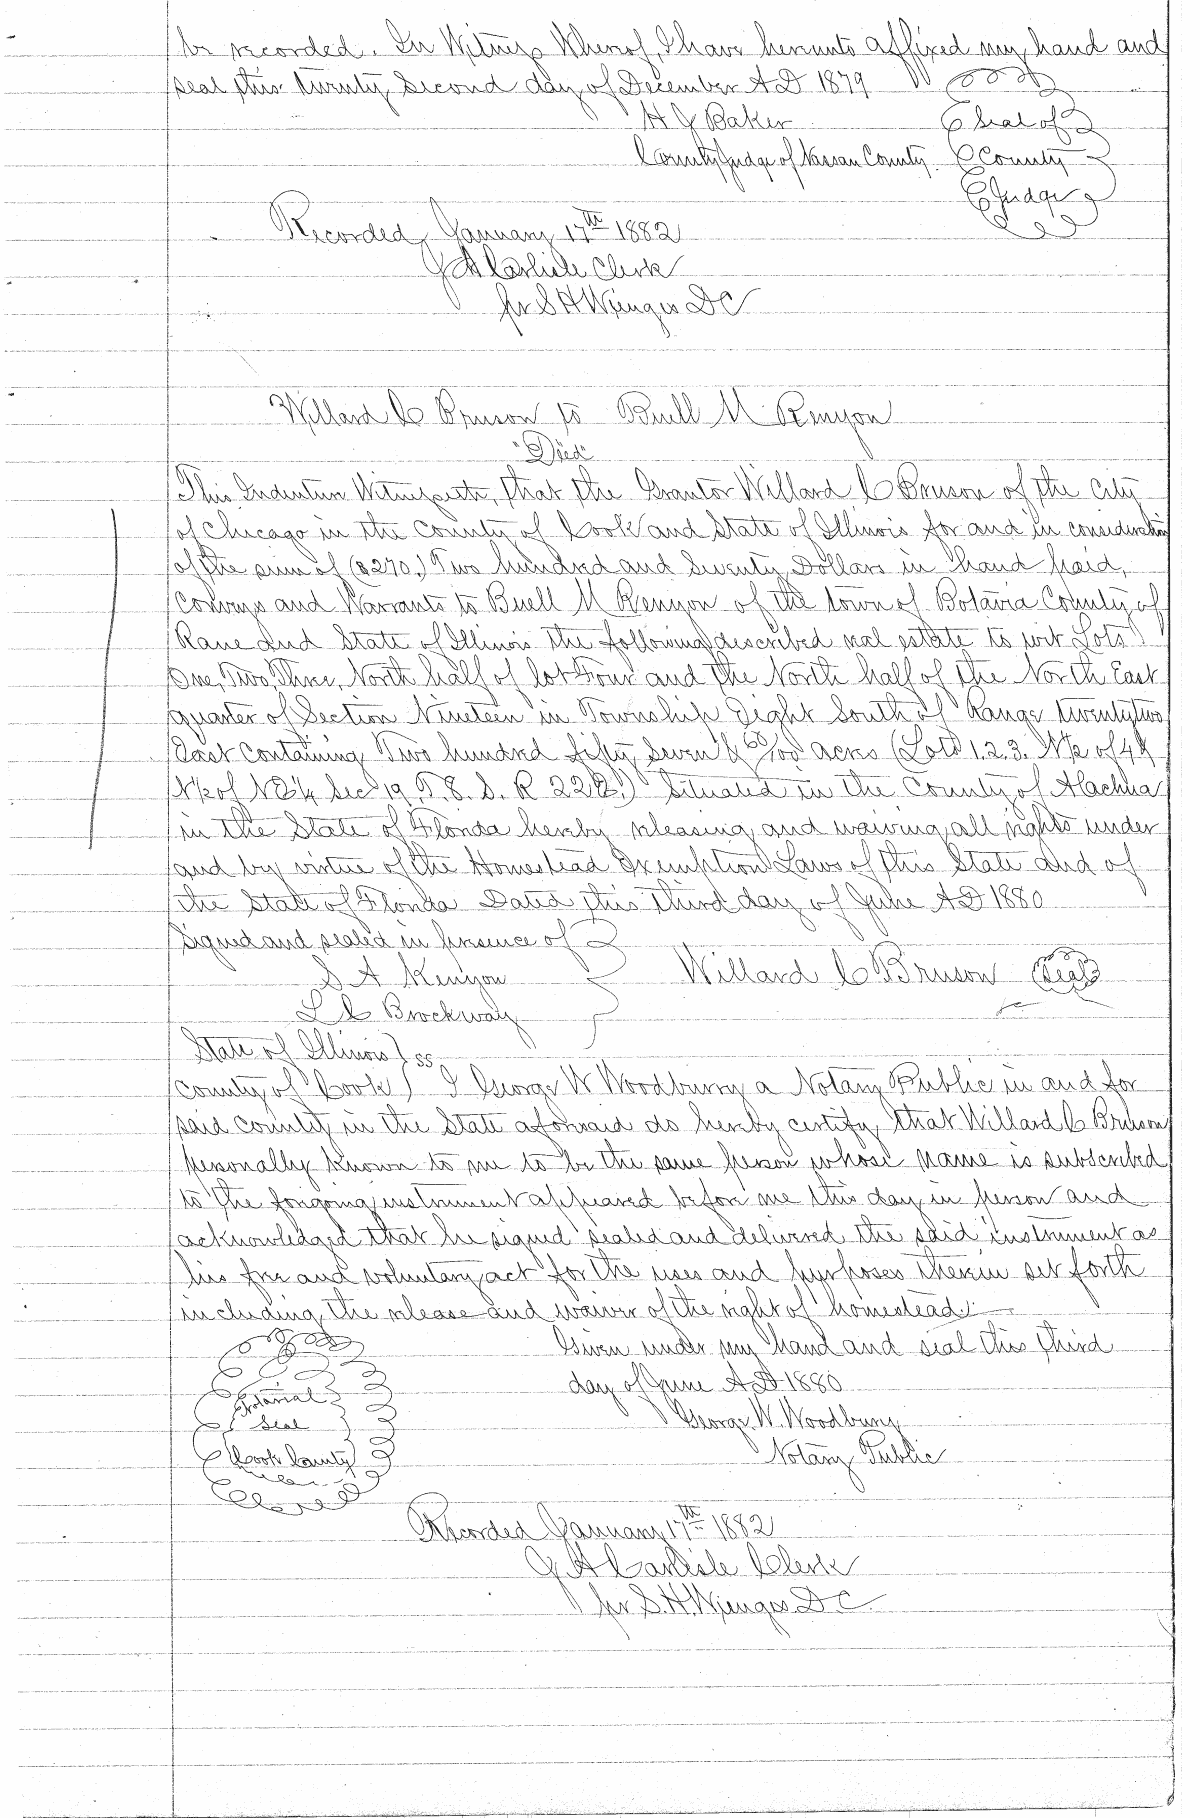 be recorded. In Witness Whereof, I have hereunto affixed my hand and
seal this twenty second day of December A D 1879
H J Baker
Seal of
County Judge of Nassau County
County
Judge
Recorded January 17th 1882
J A Carlisle Clerk
per S H Wienges D C
Willard C Bruson to Buell M Kenyon
"Deed"
This Indenture Witnesseth, that the Grantor Willard C Bruson of the City
of Chicago in the County of Cook and State of Illinois for and in consideration
of the sum of ($270.) Two hundred and Seventy Dollars in hand paid,
Conveys and Warrants to Buell M Kenyon of the town of Batavia County of
Kane and State of Illinois the following described real estate to wit Lots
One, Two, Three, North half of lot Four and the North half of the North East
quarter of Section Nineteen in Township Eight South of Range twenty two
East Containing Two hundred fifty Seven & 60/100 acres (Lots 1. 2. 3. N½ of 4 &
N½ of NE¼ Sec 19. T. 8. S. R 22 E.) Situated in the County of Alachua
in the State of Florida hereby releasing and waiving all rights under
and by virtue of the Homestead Exemption Laws of this State and of
the State of Florida Dated this Third day of June A D 1880
Signed and sealed in presence of
S A Kenyon
Willard C Bruson (Seal)
L C Brockway
State of Illinois } ss
County of Cook ) I George W Woodburry a Notary Public in and for
said county in the State aforesaid do hereby certify that Willard C Bruson
personally known to me to be the same person whose name is subscribed
to the foregoing instrument appeared before me this day in person and
acknowledged that he signed sealed and delivered the said instrument as
his free and voluntary act for the uses and purposes therein set forth
including the release and waiver of the right of homestead.
Given under my hand and seal this third
day of June A D 1880
Notarial
Seal
George W. Woodbury
Cook County
Notary Public
Recorded January 17th 1882
J A Carlisle Clerk
per S. H. Wienges D. C.